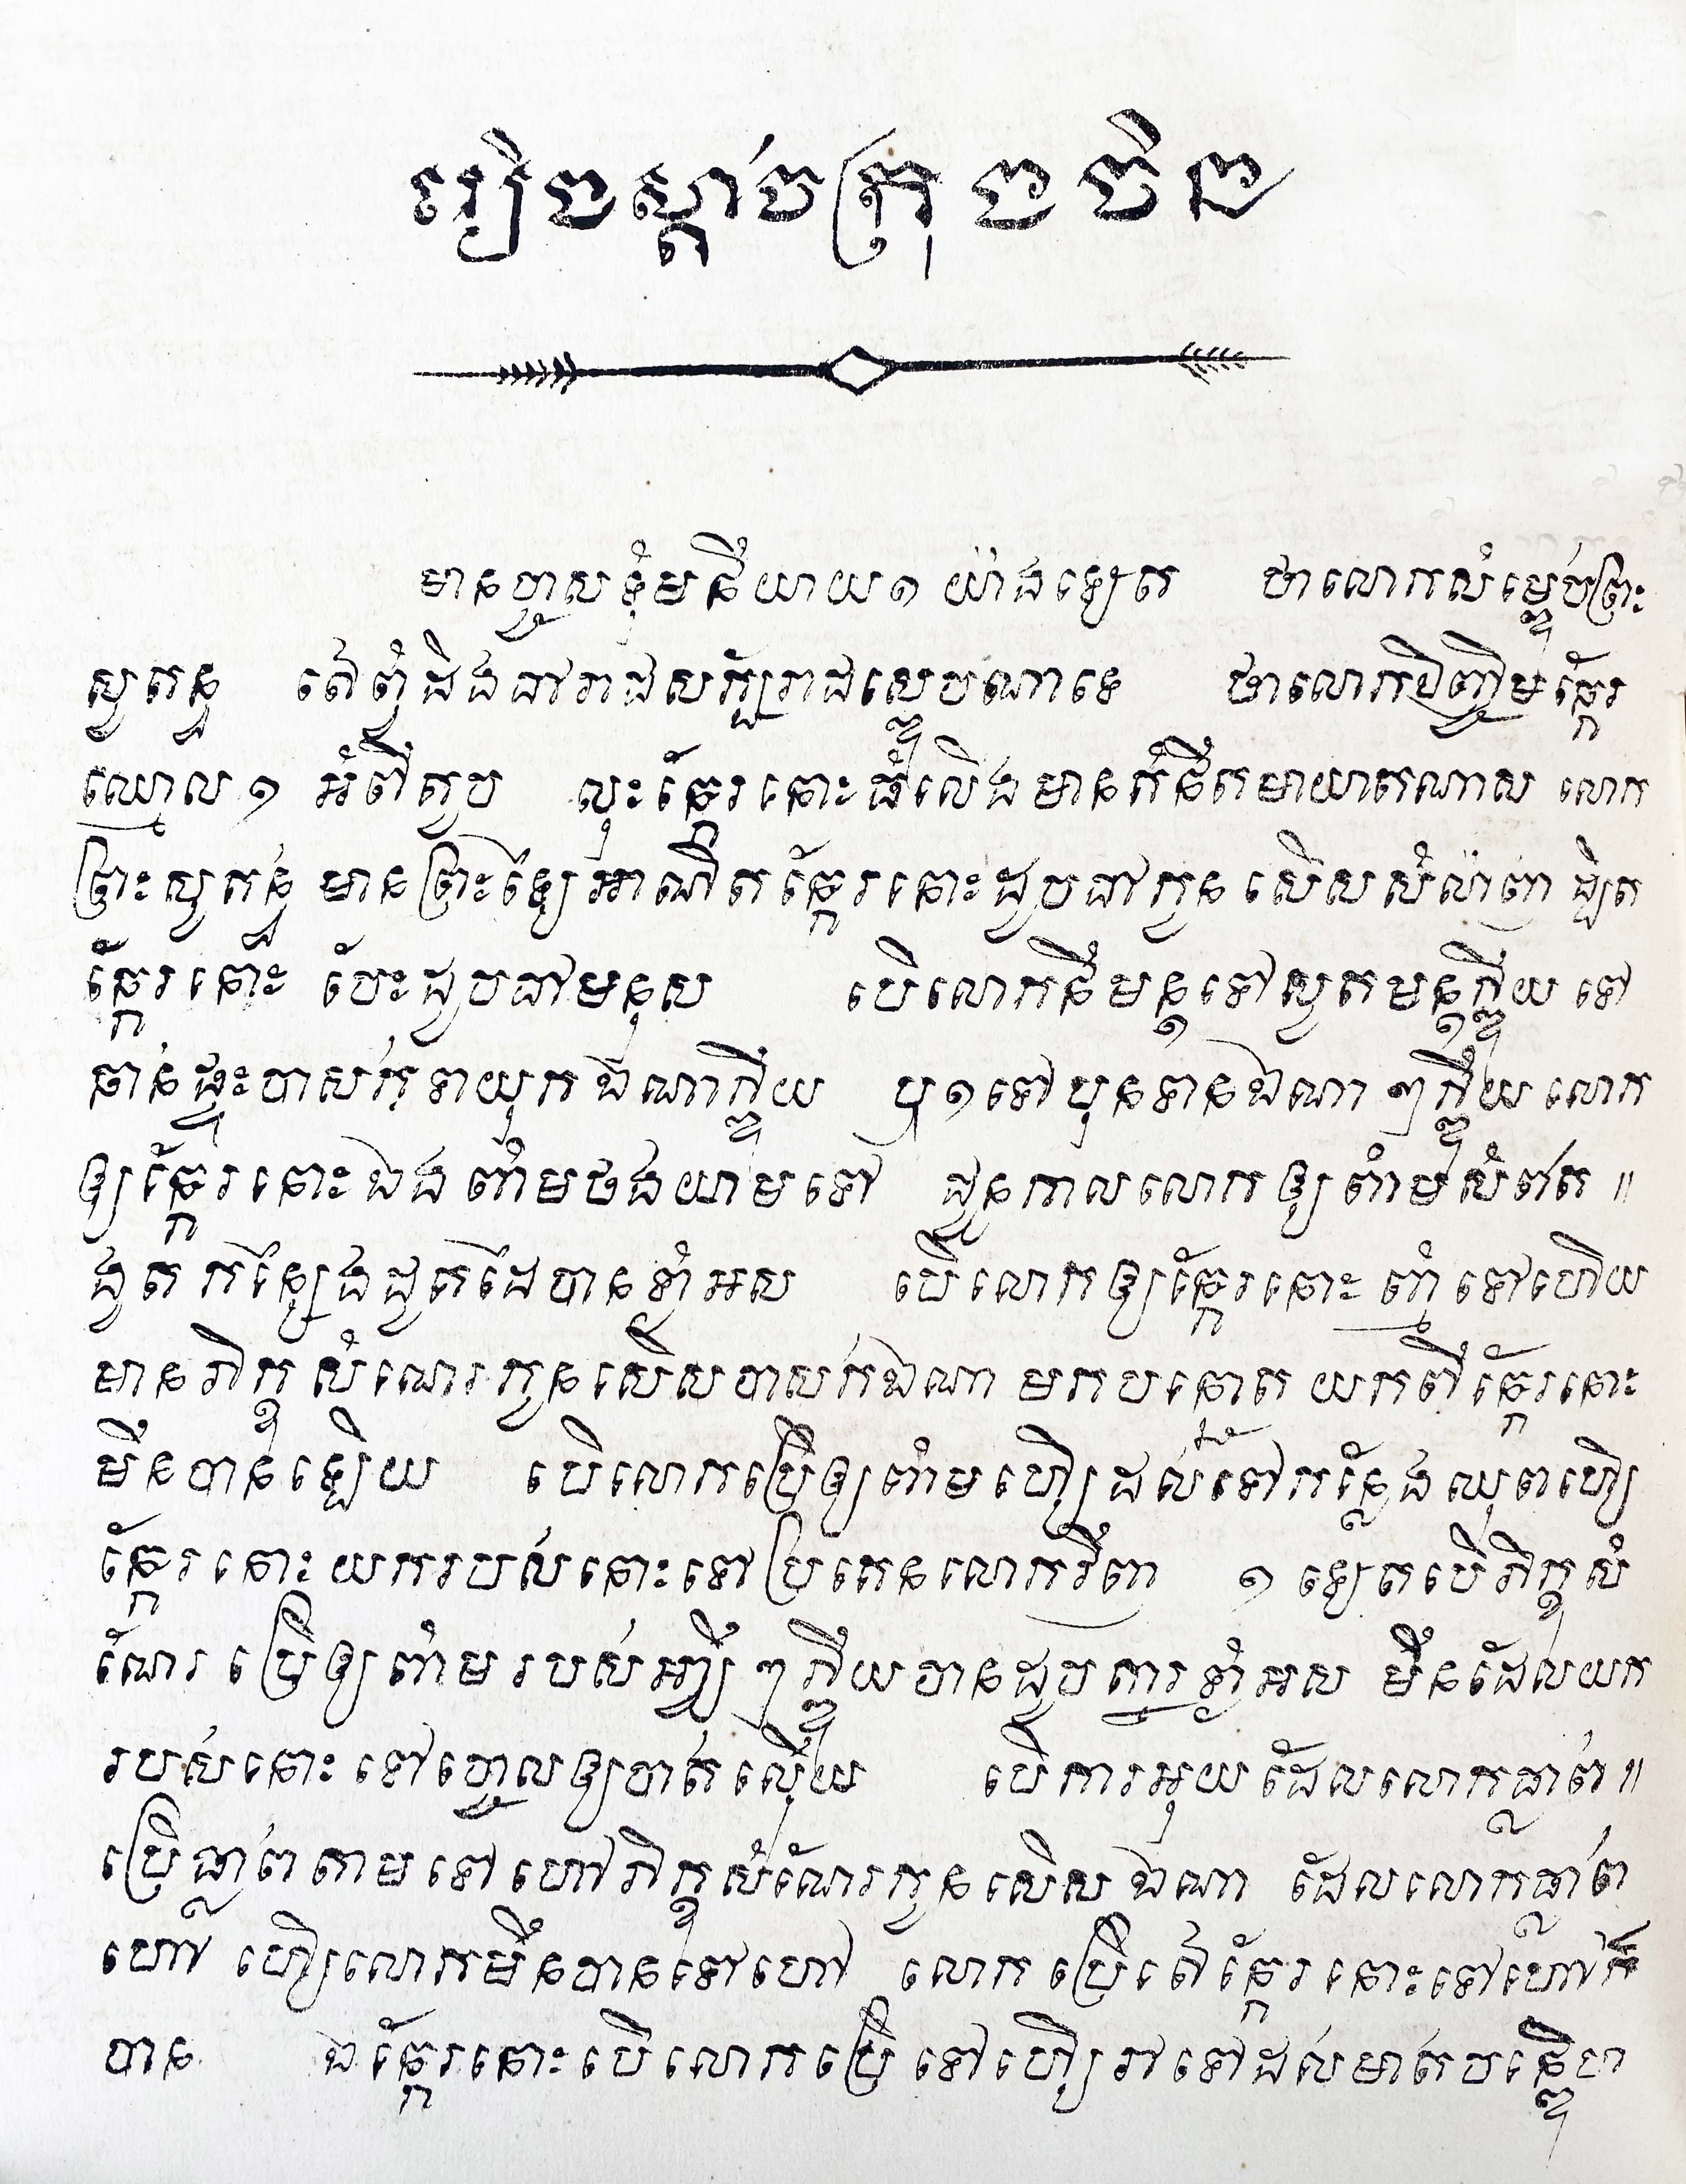 រឿងស្តាប់ក្រុងចិន
មានហ្លួសខ្ញុំមនិយាយ១ យ៉ាងទៀត ថាលោកសំម្តេចព្រះ
សុគន្ធ តែពុំដឹងជារាជសក្ដិរាជស្តេចណាទេ ថាលោកចិញ្ចឹមឆ្កែរ
ឈ្មោល ១ អំពីតូច លុះឆ្កែរនោះធំលើងមានគំនិតមាយាតណាស លោក
ព្រះសុគន្ធ មានព្រះទៃយអាណឹតឆ្កែរនោះដូចជាកូនសើសសំលាញ ដ្បិត
ឆ្កែរនោះ ចេះដូចជាមនុស បើលោកនិមន្តទៅសូតមន្តក្តីយ ទៅ
ឆាន់ផ្ទះបាសក ទាយុកឯណាក្តីយ ឬ១ទៅបុនទានឯណា ៗក្តីយ លោក
ឲ្យឆ្កែរនោះឯងពាំមចងយាមទៅ ដូនកាលលោកឲ្យពាំមសំពត ៕
ងូត កន្សែងដូតដៃបានទាំអស បើលោកឲ្យឆ្កែរនោះពាំទៅហើយ
មានភិក្ខុសំណេរកូនសើសបាសកឯណា មកបឆោត យកពីឆ្កែរនោះ
មឹនបានឡើយ បើលោកប្រើឲ្យពាំមហើរដល់ទៅកន្លែងឈុតហើរ
ឆ្កែរនោះយករបស់នោះទៅប្រគេនលោកវិញ ១ ទៀតបើភិក្ខុសំ
ណែរ ប្រើឲ្យពាំមរបស់អ្វី ៗក្តីយបានដូចគ្នារទាំអស មឹនដែលយក
របស់នោះទៅចោលឲ្យបាត់លើយ បើការអុយដែលលោកធ្លាប់៕
ប្រើធ្លាប់តាមទៅហៅភិក្ខុសំណែរកូនសើសឯណា ដែលលោកធ្លាប់
ហៅ ហើរលោកមឹនបានទៅហៅ លោកប្រើតែឆ្កែរនោះទៅហៅក៏
បាន ឯឆ្កែរនោះបើលោកប្រើទៅហើរវាទៅដល់មាត់បន្ទីហ